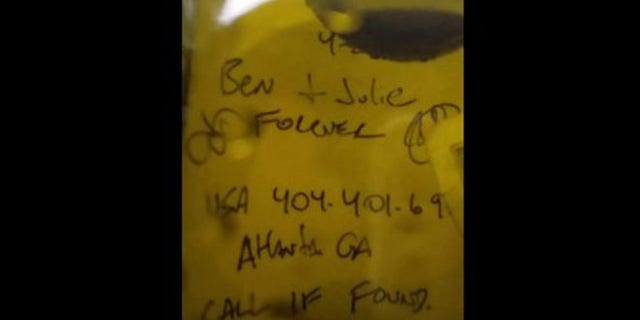 Ben + Julie
Forever
USA 404-401-69
Atlanta GA
CALL IF FOUND.